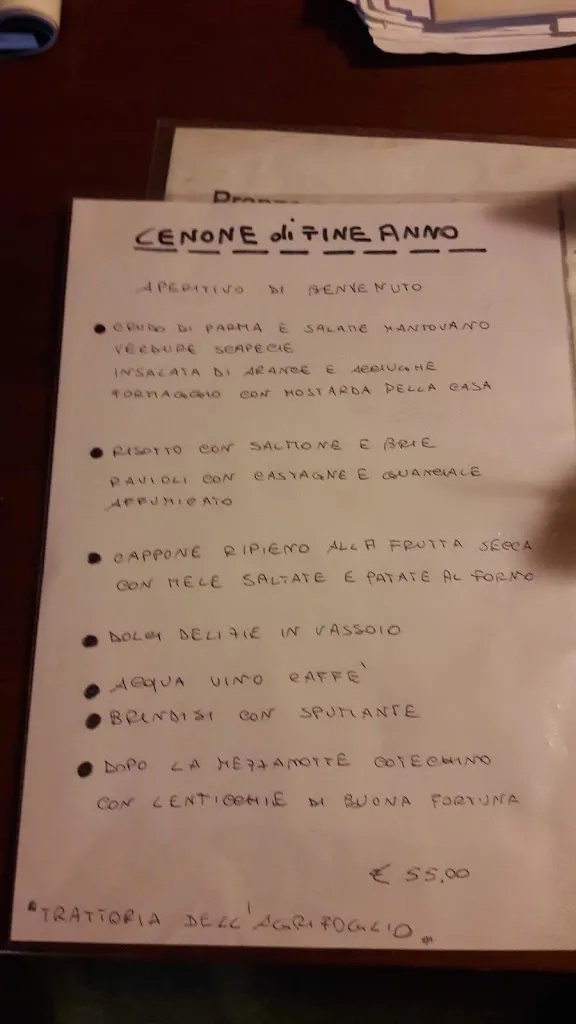 Prop
CENONE di FINE ANNO
APERITIVO DI BENVENUTO
• CRUDO DI PARMA E SALAME MANTOVANO
VERDURE SCAPECIE
INSALATA DI ARANCE E ACCIUGHE
FORMAGGIO CON MOSTARDA DELLA CASA
• RISOTTO CON SALMONE E BRIE
RAVIOLI CON CASTAGNE E GUANCIALE
AFFUMICATO
• CAPPONE RIPIENO ALLA FRUTTA SECCA
CON MELE SALTATE E PATATE AL FORNO
• DOLCI DELIZIE IN VASSOIO
• ACQUA VINO CAFFE'
• BRINDISI CON SPUMANTE
• DOPO LA MEZZANOTTE COTECHINO
CON LENTICCHIE DI BUONA FORTUNA
€ 55,00
"TRATTORIA DELL'AGRIFOGLIO"